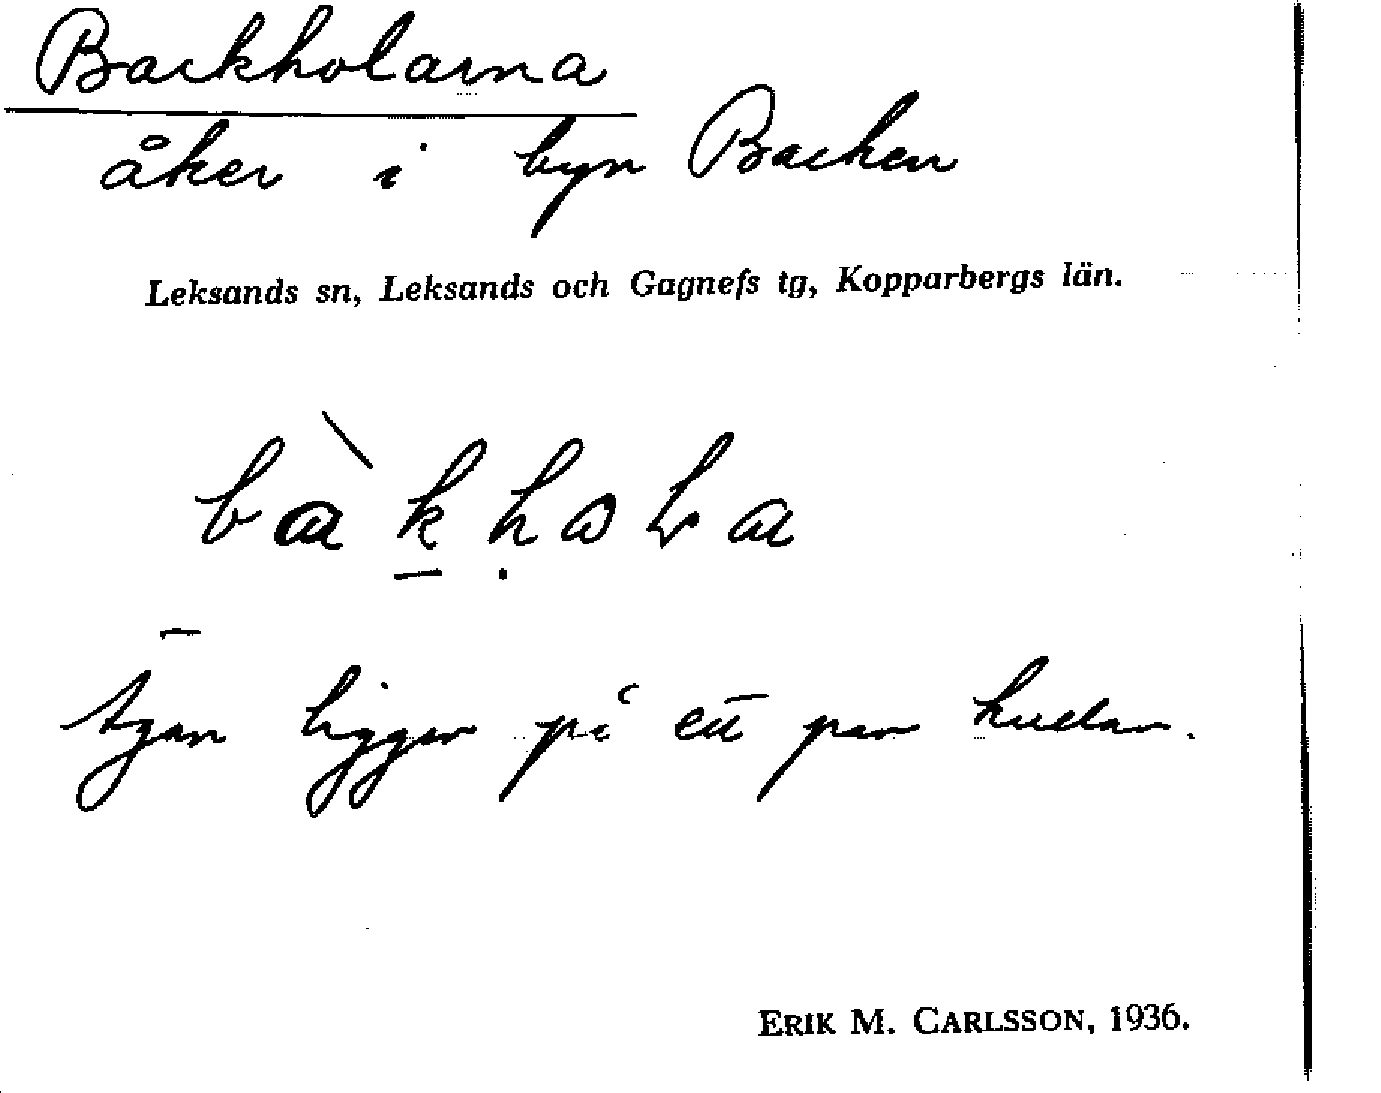 Backholarna
åker i byn Backen
Leksands sn, Leksands och Gagnefs tg, Kopparbergs län.
ligger på ett par kullar.
ERIK M. CARLSSON, 1936.